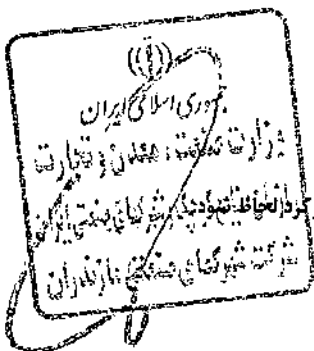 جمهوری اسلامی ایران
وزارت صنعت، معدن و تجارت
کرد لحاظ نمود شهرکهای صنعتی ایران
شرکت شهرکهای صنعتی مازندران